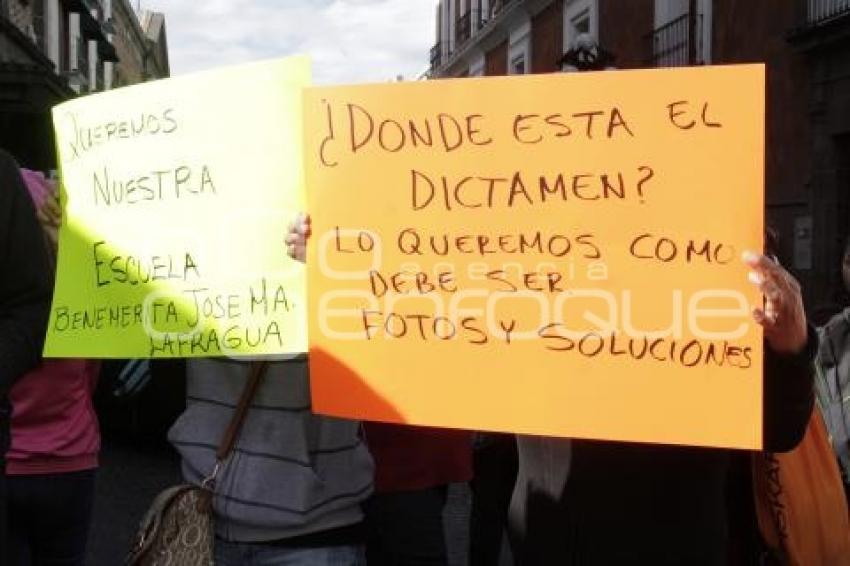 QUEREMOS
NUESTRA
ESCUELA
BENEMERITA JOSE MA.
LAFRAGUA
¿DONDE ESTA EL
DICTAMEN?
LO QUEREMOS COMO
DEBE SER
FOTOS Y SOLUCIONES
agencia
enfoque